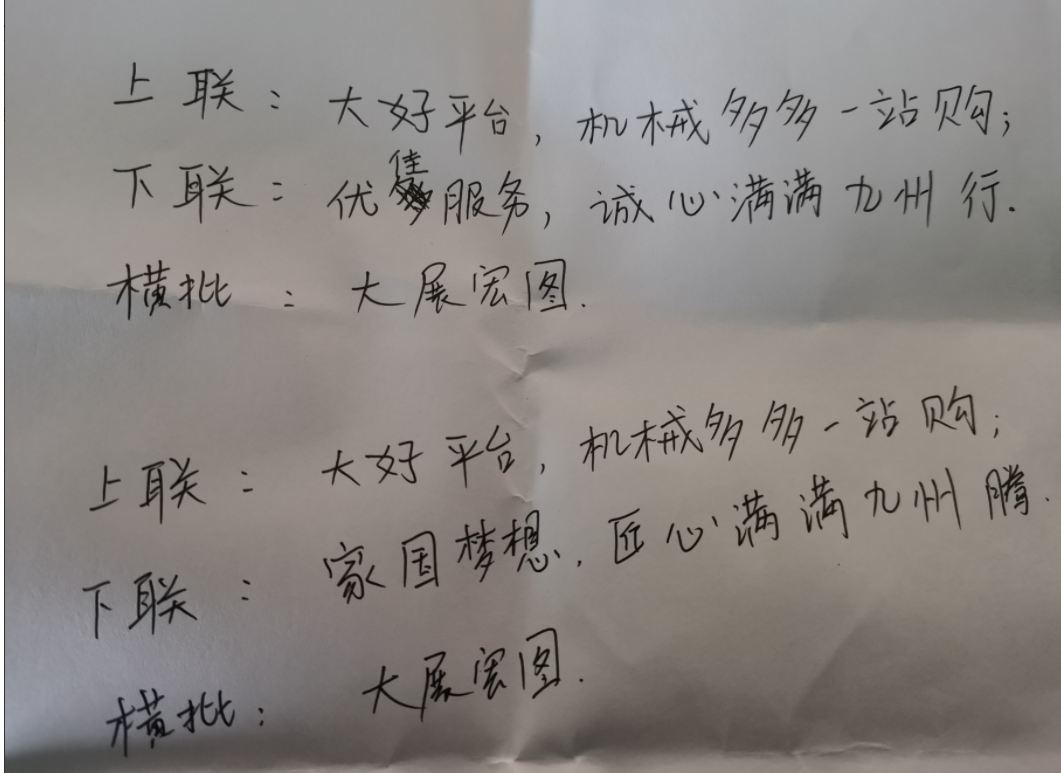 上联：大好平台，机械多多一站购；
下联：优佳服务，诚心满满九州行.
横批：大展宏图.
上联：大好平台，机械多多一站购；
下联：家国梦想，匠心满满九州腾.
横批：大展宏图.